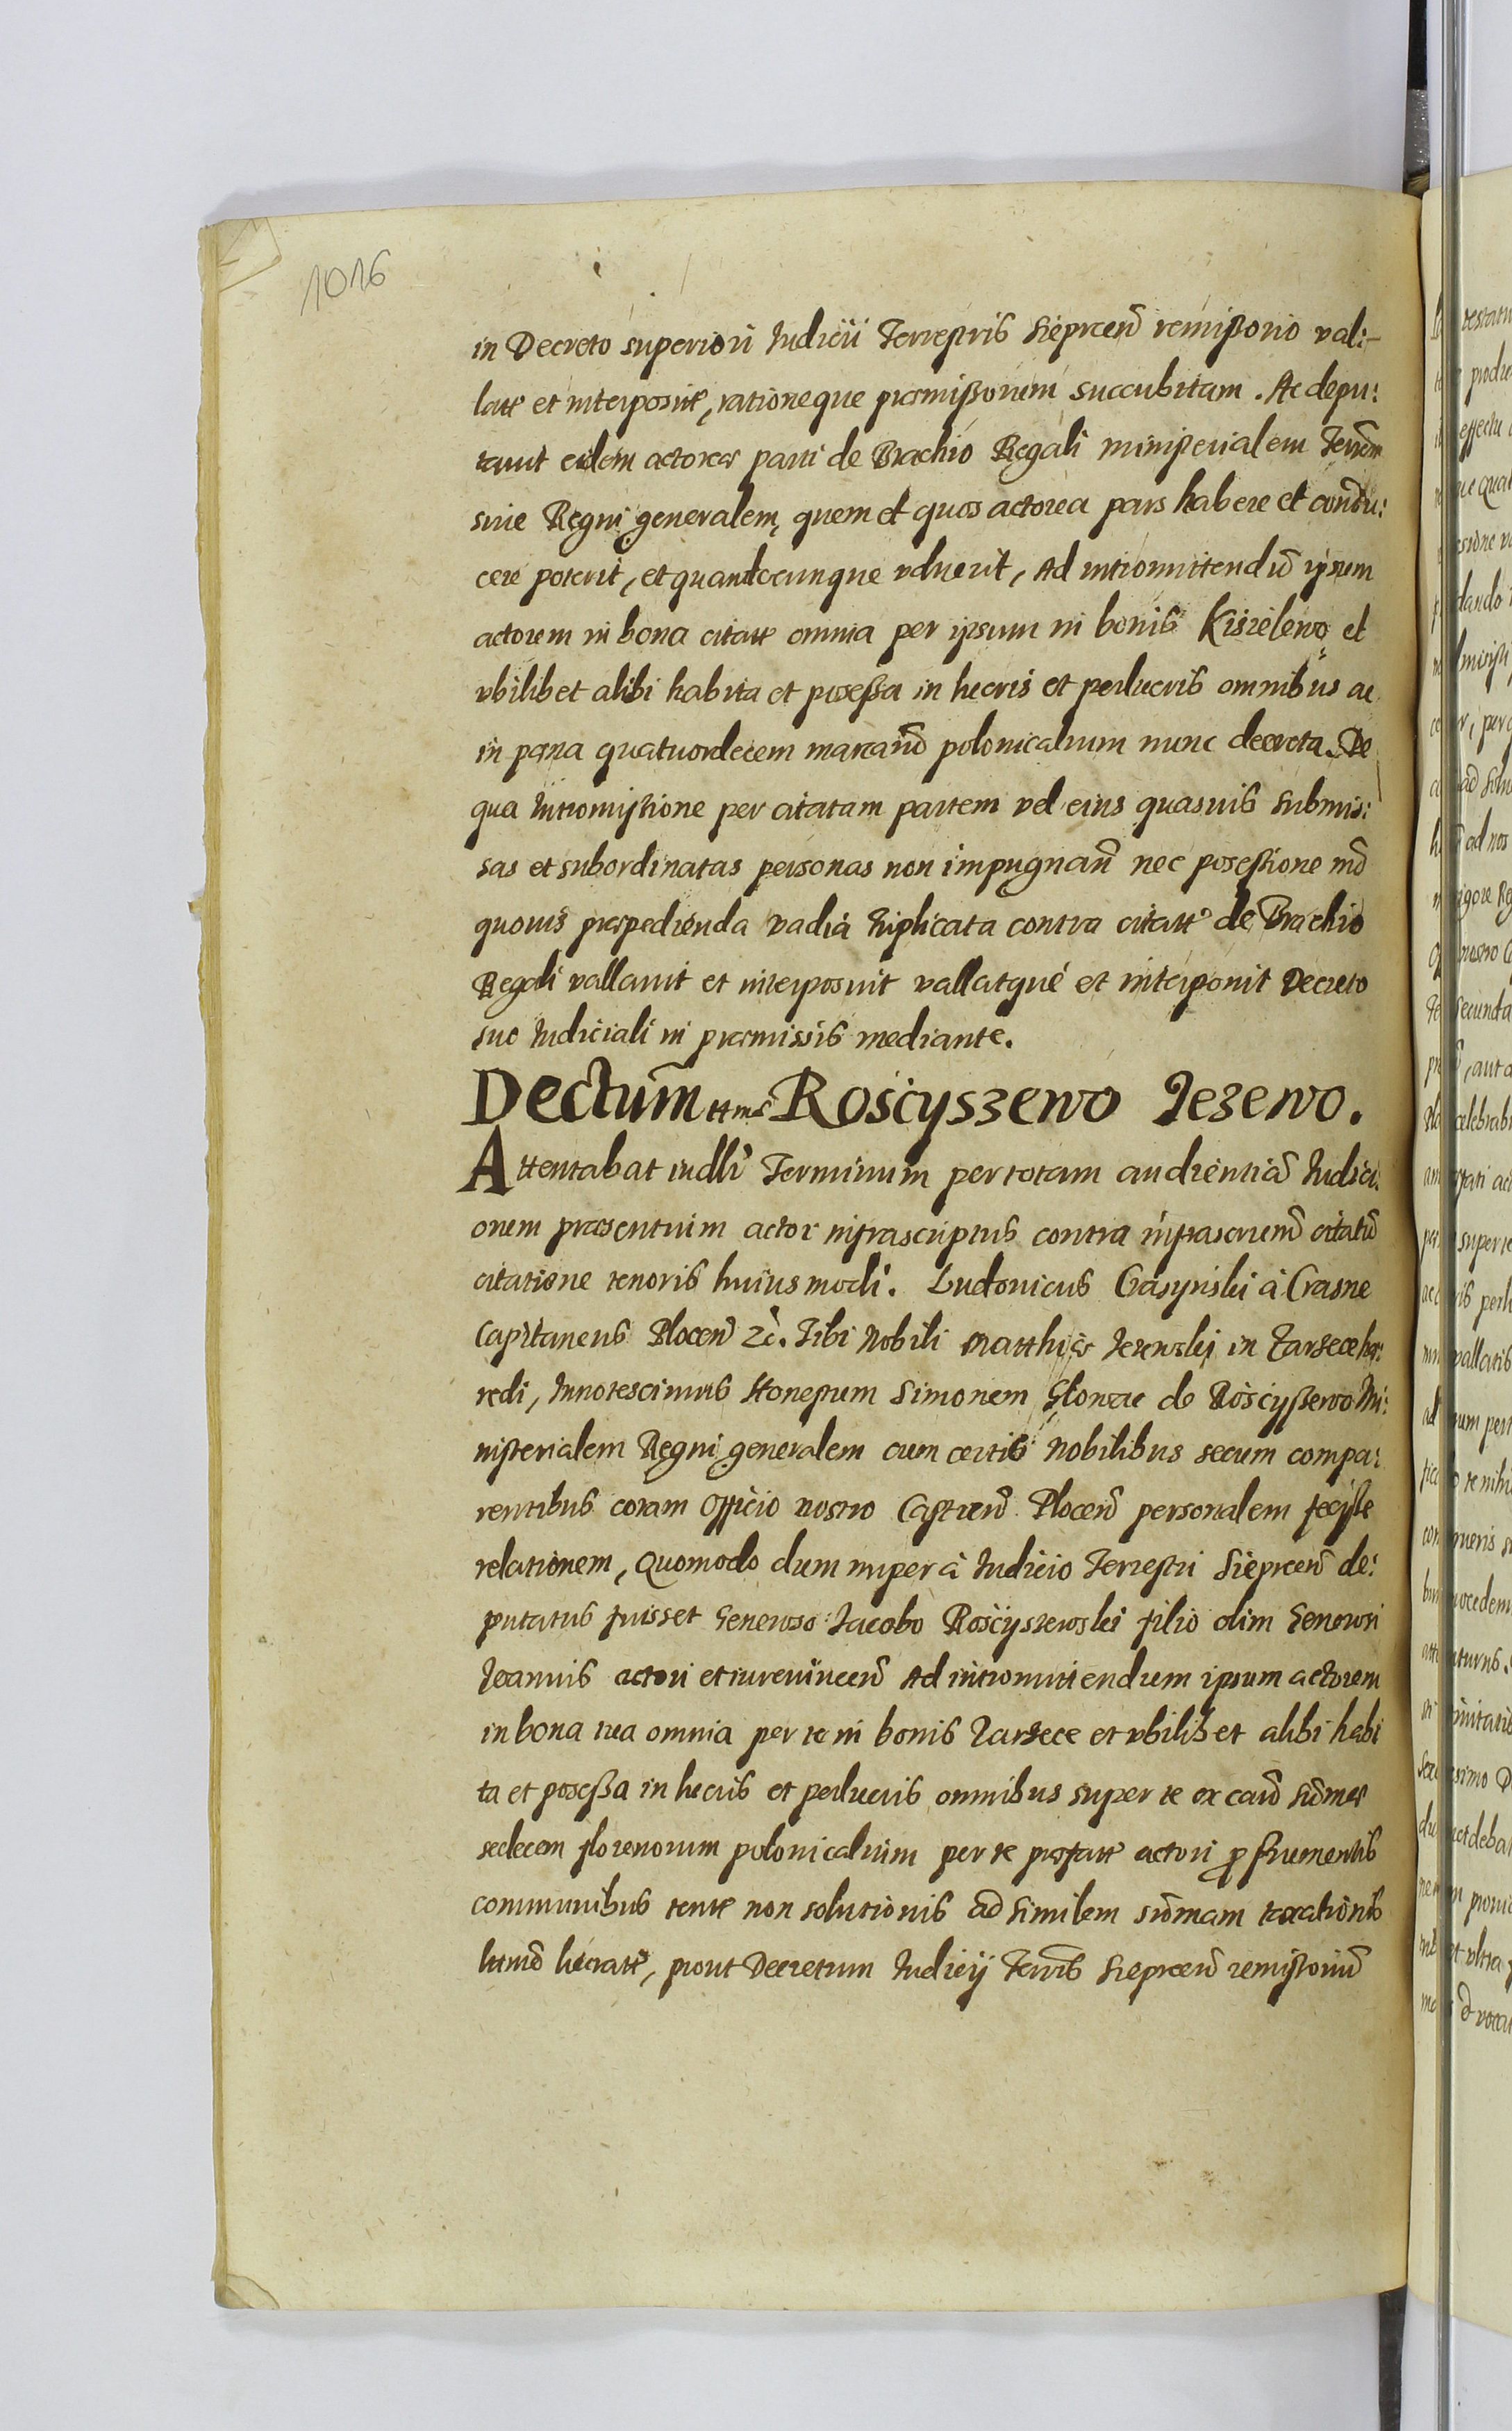 1016
in Decreto superiori Iudicii Terrestris Sieprcen̄ remissorio vali-
late et interposite, rationeque præmissorum succubitam. Ac depu:
tavit eidem actoreæ parti de Brachio Regali ministerialem Terrēm
sive Regni generalem, quem et quos actorea pars habere et condu:
cere poterit, et quandocunque voluerit, Ad intromittendū ipsum
actorem in bona citate omnia per ipsum in bonis Kisielewo et
vbilibet alibi habita et possessa in lucris et perlucris omnibus ac
in pæna quatuordecem marcarū polonicalium nunc decreta. De
qua Intromissione per citatam partem vel eius quasvis submis:
sas et subordinatas personas non impugnan̄ nec possessione mō
quovis præpedienda vadia triplicata contra citate de Brachio
Regali vallavit et interposuit vallatque et interponit Decreto
suo Iudiciali in præmissis mediante.
Dectum̄ ttms Rosciszewo Iezewo.
Attentabat indlī Terminum per totam audientiā Iudici:
onem præsentium actor infrascriptus contra infrascriem̄ citatū
citatione tenoris huiusmodi. Ludovicus Crasynski à Crasne
Capitaneus Plocen̄ zc. Tibi Nobili Matthiæ Iezewski in Zarzece hæ:
redi, Innotescimus Honestum Simonem Glowac de Rosciszewo Mi:
nisterialem Regni generalem cum certis Nobilibus secum compa:
rentibus coram Officio nostro Castren̄ Plocen̄ personalem fecisse
relationem, Quomodo dum nuper à Iudicio Terrestri Sieprcen̄ de:
putatus fuisset Generoso Iacobo Rosciszewski filio olim Generosi
Ioannis actori et iurevincen̄ Ad intromittendum ipsum actorem
in bona tua omnia per te in bonis Zarzece et vbilibet alibi habi
ta et possessa in lucris et perlucris omnibus super te ex caūs sūmæ
sedecem florenorum polonicalium per te præfate actori pro frumentis
communibus tente non solutionis ad similem sūmam taxationis
litmō lucrate, prout Decretum Iudicij Terrīs Sieprcen̄ remissoriū